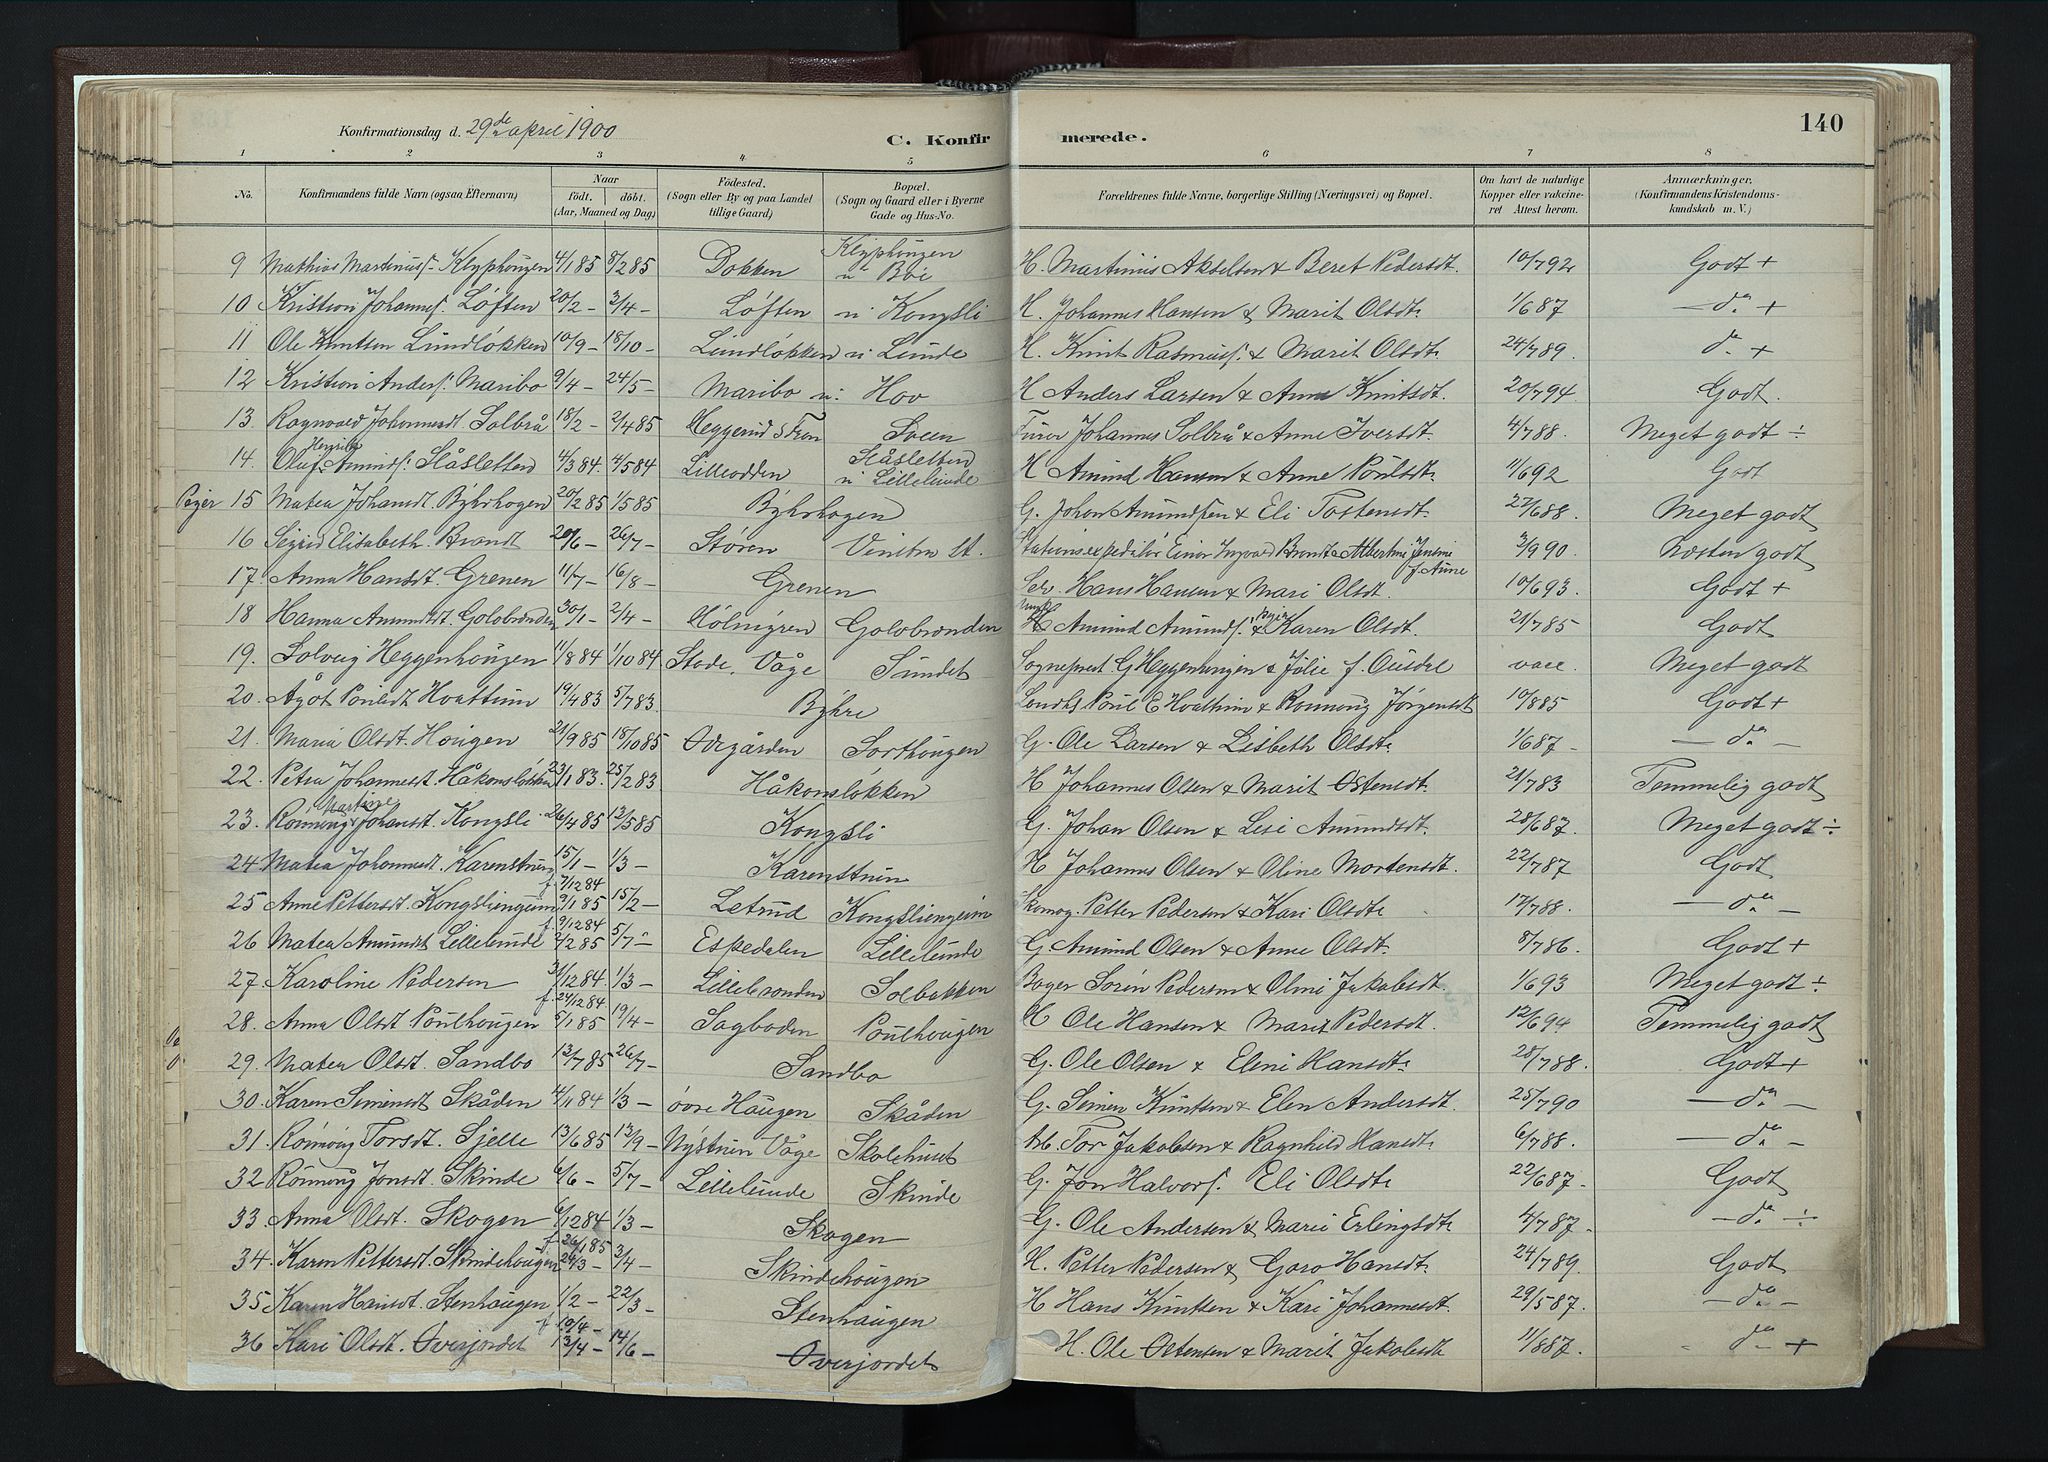 Konfirmationsdag d. 29de april 1900
C. Konfirmerede.
140
1 2 3 4 5 6 7 8
No. Konfirmandens fulde Navn (ogsaa Efternavn) Naar födt. döbt. (Aar, Maaned og Dag) Födested. (Sogn eller By og paa Landet tillige Gaard) Bopæl. (Sogn og Gaard eller i Byerne Gade og Hus-No. Forældrenes fulde Navne, borgerlige Stilling (Næringsvei) og Bopæl. Om havt de naturlige Kopper eller vakcineret Attest herom. Anmærkninger. (Konfirmandens Kristendomskundskab m. V.)
9 Mathias Martinuss. Klyphougen 4/1 85 8/2 85 Dokken Klyphougen u. Böe H. Martinus Akselsen & Beret Pedersdt. 10/7 92 Godt +
10 Kristian Johanness. Løften 20/2 - 3/4 - Løften u. Kongsli H. Johannes Hansen & Marit Olsdt. 1/6 87 - do. +
11 Ole Knutsen Lundløkken 10/9 - 18/10 - Lundløkken u. Lunde H. Knut Rasmuss. & Marit Olsdt. 24/7 89. do. +
12 Kristian Anders. Maribo 9/4 - 24/5 - Maribo u. Hov H Anders Larsen & Anne Knutsdt. 20/7 94. Godt.
13. Ragnvald Johannesdt Solbrå 18/2 - 2/4 85 Heggerud S Fron Sveen Furer Johannes Solbrå & Anne Iversdt. 4/7 88. Meget godt ÷
14. Oluf Henrik Amunds. Slåsletten 4/3 84. 4/5 84 Lilleodden Slåsletten u. Lillelunde H Amund Hansen & Anne Poulsdt. 11/6 92 Godt
15 Matea Johansdt. Býhrhogen 20/2 85 1/5 85 Býhrhagen G. Johan Amundsen & Eli Tostensdt. 27/6 88. Meget godt
16 Sigrid Elisabeth. Brandt 20/6 - 26/7 - Støren Vinstra st. Stationsexpeditör Einar Ingvald Brandt & Albertine Jensine f. Aune 3/9 90. Næsten godt
17. Anna Hansdt. Grenen 11/7 - 16/8 - Grenen Hans Hansen & Mari Olsdt. 10/6 93. Godt +
18 Hanna Amundsdt. Golobrønden 30/1 - 2/4 - Hölmýren Golobrønden H Amund Amunds. & Karen Olsdt. 21/7 85 Godt
19. Solveig Heggenhougen 11/8 84 1/10 84 Stade. Våge Sundet Sogneprest G Heggenhougen & Julie f. Ousdal vacc. Meget godt
20. Agot Poulsdt Hvattum 19/4 83 5/7 83. Býhre Poul E Hvattum & Rönnoug Jørgensdt 10/8 85 Godt +
21. Maria Olsdt. Hougen 21/9 85 18/10 85 Ødegården Sorthougen G. Ole Larsen & Lisbeth Olsdt. 1/6 87 - - do. -
22. Petra Johannesdt. Håkonsløkken 23/1 83. 25/2 83 Håkonsløkken H Johannes Olsen & Marit Østensdt. 21/7 83 Temmelig godt
23. Rönnoug Martine Johansdt. Kongsli. 26/4 85 12/5 85 Kongsli G. Johan Olsen & Lisi Amundsdt. 28/6 87. Meget godt ÷
24 Matea Johannesdt. Karenstuen 15/1 - 1/3 - Karenstuen H Johannes Olsen & Oline Mortensdt. 22/7 87 Godt
25 Anne Pettersdt. Kongsliengeim f 7/12 84 3/1 85 15/2 - Letrud Kongsliengeim Skomag. Petter Pedersen & Kari Olsdt. 17/7 88. - do. -
26 Matea Amundsdt Lillelunde f. 9/12 84 2/2 85 5/7 - Espedalen Lillelunde G Amund Olsen & Anne Olsdt. 8/7 86. Godt +
27. Karoline Pedersen 31/12 84. 1/3 - Lillebronden Solbakken Bager Sören Pedersen & Oline Jakobsdt. 1/6 93 Meget godt ÷
28. Anna Olsdt Poulhougen f 24/12 84 5/1 85 19/4 - Sagboden Poulhougen H Ole Hansen & Marit Pedersdt. 12/6 94 Temmelig godt
29. Matea Olsdt. Sandbo 13/7 85 26/7 - Sandbo G. Ole Olsen & Eline Hansdt. 28/7 88. Godt +
30. Karen Simensdt Skåden 4/11 84 1/3 - övre Haugen Skåden G. Simen Knutsen & Elen Andersdt. 25/7 90 - do. -
31. Rönnoug Torsdt. Sjelle 13/6 85 13/9 - Nýstuen Våge Skolehuset Tor Jakobsen & Ragnhild Hansdt. 6/7 88. - do. -
32 Rönnoug Jonsdt. Skinde 6/6 - 5/7 - Lillelunde Skinde G. Jon Halvors. Eli Olsdt. 22/6 87. Godt
33. Anna Olsdt. Skogen 6/12 84 1/3 - Skogen G. Ole Andersen & Mari Erlingsdt. 4/7 87. - do. ÷
34. Karen Pettersdt. Skindehougen f 26/1 85 24/3 - 3/4 - Skindehougen H. Petter Pedersen & Goro Hansdt. 24/7 89. Godt
35 Karen Hansdt. Stenhaugen 1/2 - 22/3 - Stenhaugen H Hans Knutsen & Kari Johannesdt. 29/5 87. - do. -
36 Kari Olsdt. Øverjordet f 10/4 - 13/4 - 14/6 - Øverjordet H. Ole Østensen & Marit Jakobsdt 11/8 87. do. +